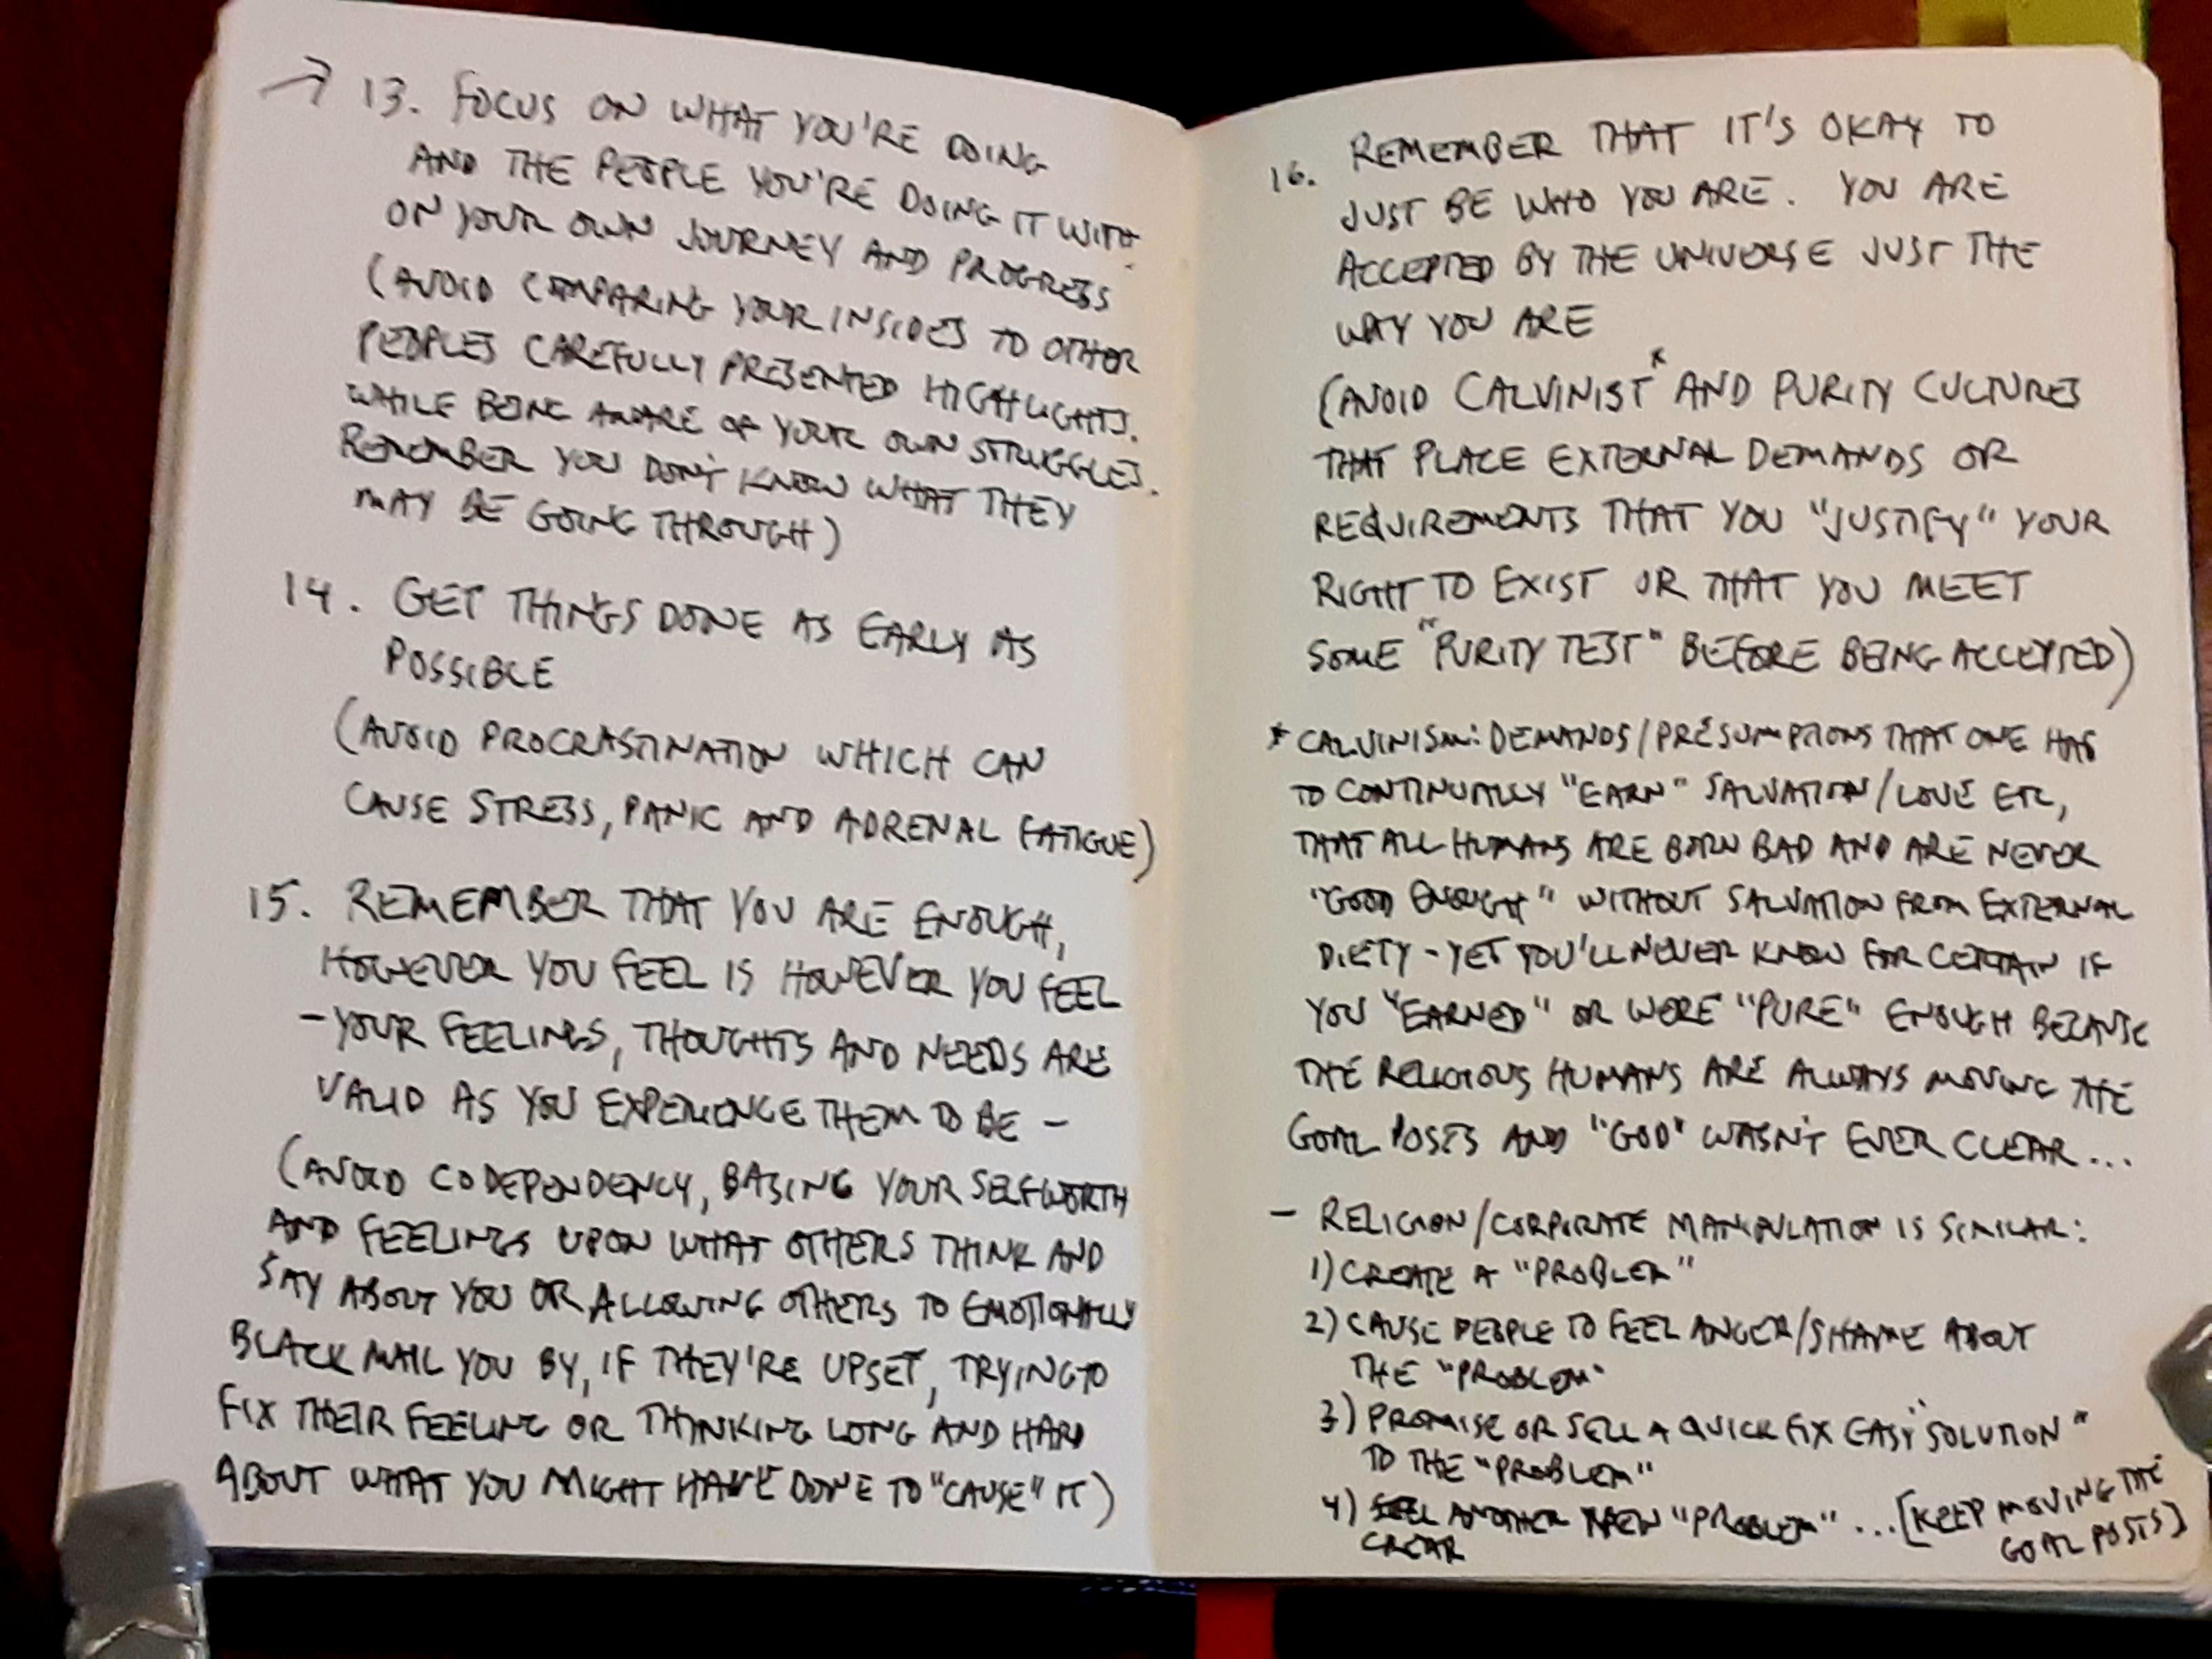 → 13. FOCUS ON WHAT YOU'RE DOING
AND THE PEOPLE YOU'RE DOING IT WITH.
ON YOUR OWN JOURNEY AND PROGRESS
(AVOID COMPARING YOUR INSIDES TO OTHER
PEOPLES CAREFULLY PRESENTED HIGHLIGHTS.
WHILE BEING AWARE OF YOUR OWN STRUGGLES.
REMEMBER YOU DON'T KNOW WHAT THEY
MAY BE GOING THROUGH)
14. GET THINGS DONE AS EARLY AS
POSSIBLE
(AVOID PROCRASTINATION WHICH CAN
CAUSE STRESS, PANIC AND ADRENAL FATIGUE)
15. REMEMBER THAT YOU ARE ENOUGH,
HOWEVER YOU FEEL IS HOWEVER YOU FEEL
- YOUR FEELINGS, THOUGHTS AND NEEDS ARE
VALID AS YOU EXPERIENCE THEM TO BE -
(AVOID CODEPENDENCY, BASING YOUR SELFWORTH
AND FEELINGS UPON WHAT OTHERS THINK AND
SAY ABOUT YOU OR ALLOWING OTHERS TO EMOTIONALLY
BLACKMAIL YOU BY, IF THEY'RE UPSET, TRYING TO
FIX THEIR FEELING OR THINKING LONG AND HARD
ABOUT WHAT YOU MIGHT HAVE DONE TO "CAUSE" IT)
16. REMEMBER THAT IT'S OKAY TO
JUST BE WHO YOU ARE. YOU ARE
ACCEPTED BY THE UNIVERSE JUST THE
WAY YOU ARE
(AVOID CALVINIST* AND PURITY CULTURES
THAT PLACE EXTERNAL DEMANDS OR
REQUIREMENTS THAT YOU "JUSTIFY" YOUR
RIGHT TO EXIST OR THAT YOU MEET
SOME "PURITY TEST" BEFORE BEING ACCEPTED)
* CALVINISM: DEMANDS/PRESUMPTIONS THAT ONE HAS
TO CONTINUALLY "EARN" SALVATION/LOVE ETC,
THAT ALL HUMANS ARE BORN BAD AND ARE NEVER
"GOOD ENOUGH" WITHOUT SALVATION FROM EXTERNAL
DIETY - YET YOU'LL NEVER KNOW FOR CERTAIN IF
YOU "EARNED" OR WERE "PURE" ENOUGH BECAUSE
THE RELIGIOUS HUMANS ARE ALWAYS MOVING THE
GOAL POSTS AND "GOD" WASN'T EVER CLEAR...
- RELIGION/CORPORATE MANIPULATION IS SIMILAR:
1) CREATE A "PROBLEM"
2) CAUSE PEOPLE TO FEEL ANGER/SHAME ABOUT
THE "PROBLEM"
3) PROMISE OR SELL A QUICK FIX EASY "SOLUTION"
TO THE "PROBLEM"
4) ANOTHER NEW "PROBLEM" ... [KEEP MOVING THE
GOAL POSTS]